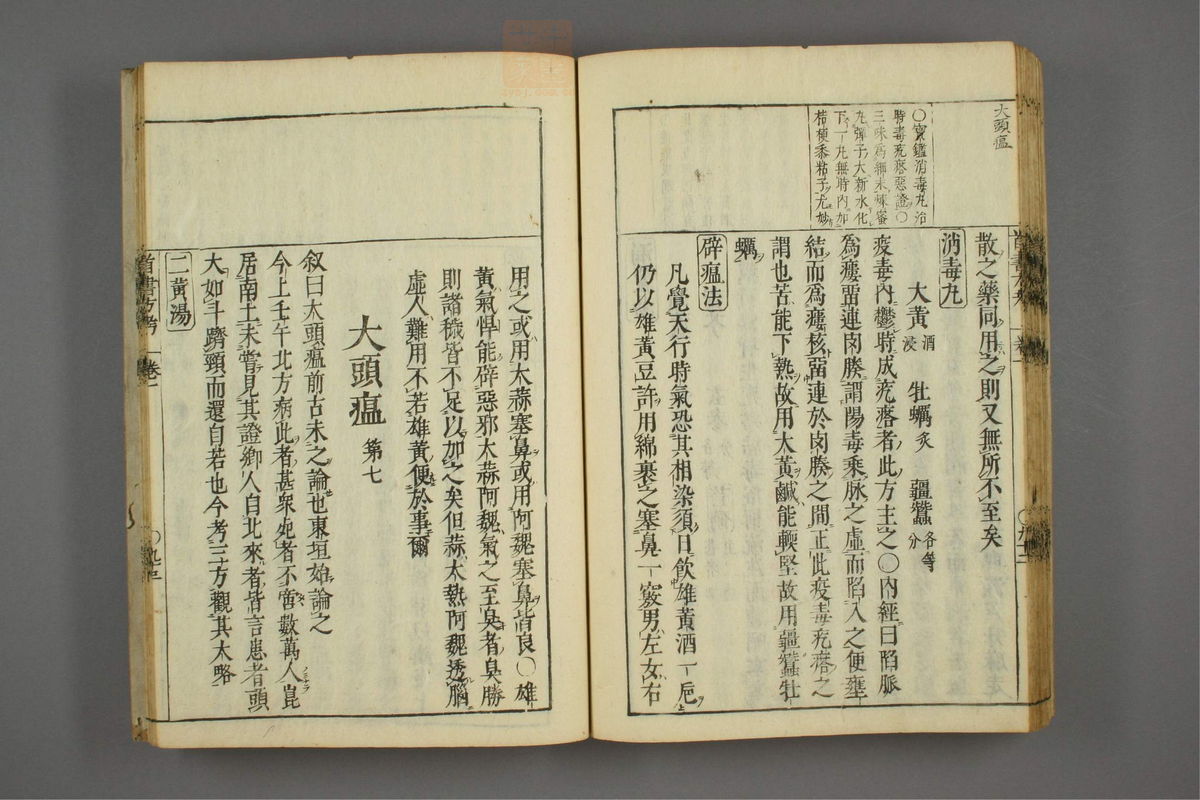 大頭瘟
○寶鑑消毒丸治
時毒疙瘩惡證○
三味為細末煉蜜
丸彈子大新水化
下一丸無時內加
桔梗黍粘子尤妙
散之藥同用之則又無所不至矣
消毒丸
大黃酒浸 牡蠣炙 殭蠶各等分
疫毒內鬱時成疙瘩者此方主之○內經曰陷脈
為瘻畱連肉腠謂陽毒乘脉之虛而陷入之便壅
結而為瘻核畱連於肉腠之間正此疫毒疙瘩之
謂也苦能下熱故用大黃鹹能軟堅故用殭蠶牡
蠣
辟瘟法
凡覺天行時氣恐其相染須日飲雄黃酒一巵上
仍以雄黃豆許用綿裹之塞鼻一竅男左女右
用之或用大蒜塞鼻或用阿魏塞鼻皆良○雄
黃氣悍能辟惡邪大蒜阿魏氣之至臭者臭勝
則諸穢皆不足以加之矣但蒜太熱阿魏透腦
虛人難用不若雄黃便於事爾
大頭瘟 第七
叙曰大頭瘟前古未之論也東垣始論之
今上壬午北方病此者甚衆死者不啻數萬人崑
居南土未嘗見其證鄉人自北來者皆言患者頭
大如斗躋頸而還自若也今考三方觀其大略
二黃湯
卷二